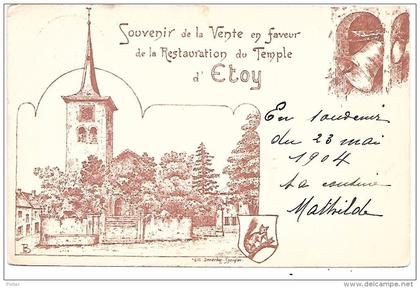 Souvenir de la Vente en faveur
de la Restauration du Temple
d'Etoy
En souvenir
du 23 mai
1904
ta cousine
Mathilde
B